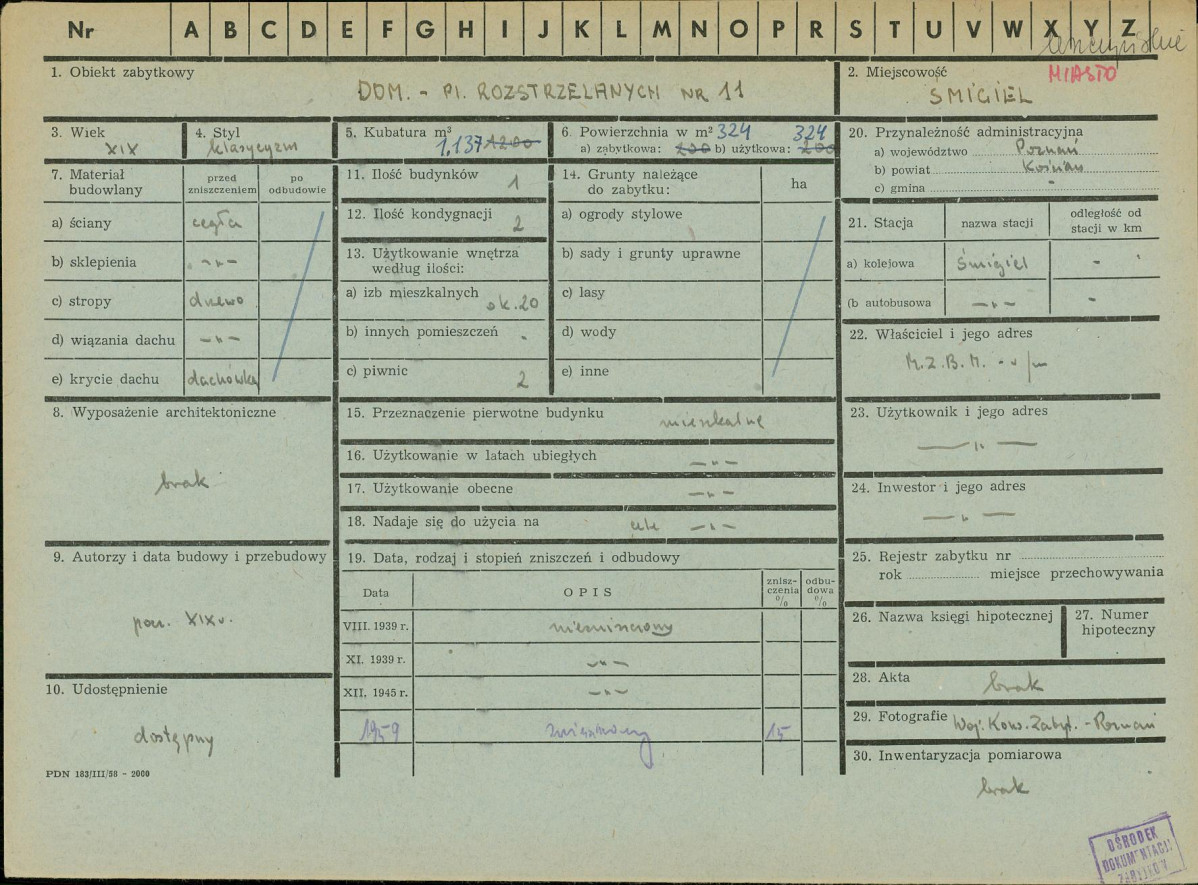 Nr A B C D E F G H I J K L M N O P R S T U V W X Y Z
MIASTO
1. Obiekt zabytkowy
DOM. - Pl. ROZSTRZELANYCH NR 11
2. Miejscowość
ŚMIGIEL
3. Wiek
XIX
4. Styl
klasycyzm
5. Kubatura m³
1,137 1200
6. Powierzchnia w m² 324 324
a) zabytkowa: 200 b) użytkowa: 200
7. Materiał budowlany
przed zniszczeniem
po odbudowie
a) ściany cegła
b) sklepienia -"-
c) stropy drzewo
d) wiązania dachu -"-
e) krycie dachu dachówka
8. Wyposażenie architektoniczne
brak
9. Autorzy i data budowy i przebudowy
pocz. XIX w.
10. Udostępnienie
dostępny
PDN 183/III/58 - 2000
11. Ilość budynków 1
12. Ilość kondygnacji 2
13. Użytkowanie wnętrza
według ilości:
a) izb mieszkalnych ok. 20
b) innych pomieszczeń -
c) piwnic 2
14. Grunty należące
do zabytku:
ha
a) ogrody stylowe
b) sady i grunty uprawne
c) lasy
d) wody
e) inne
15. Przeznaczenie pierwotne budynku mieszkalne
16. Użytkowanie w latach ubiegłych -"-
17. Użytkowanie obecne -"-
18. Nadaje się do użycia na cele -"-
19. Data, rodzaj i stopień zniszczeń i odbudowy
Data
OPIS
znisz-
czenia
%
odbu-
dowa
%
VIII. 1939 r. niezniszczony
XI. 1939 r. -"-
XII. 1945 r. -"-
1959 15
20. Przynależność administracyjna
a) województwo Poznań
b) powiat Kościan
c) gmina -
21. Stacja
nazwa stacji
odległość od
stacji w km
a) kolejowa Śmigiel -
(b autobusowa -"- -
22. Właściciel i jego adres
M.Z.B.M. - w/m
23. Użytkownik i jego adres
-"-
24. Inwestor i jego adres
-"-
25. Rejestr zabytku nr
rok miejsce przechowywania
26. Nazwa księgi hipotecznej
27. Numer
hipoteczny
28. Akta
brak
29. Fotografie Woj. Kons. Zabyt. - Poznań
30. Inwentaryzacja pomiarowa
brak
OŚRODEK
DOKUMENTACJI
ZABYTKÓW